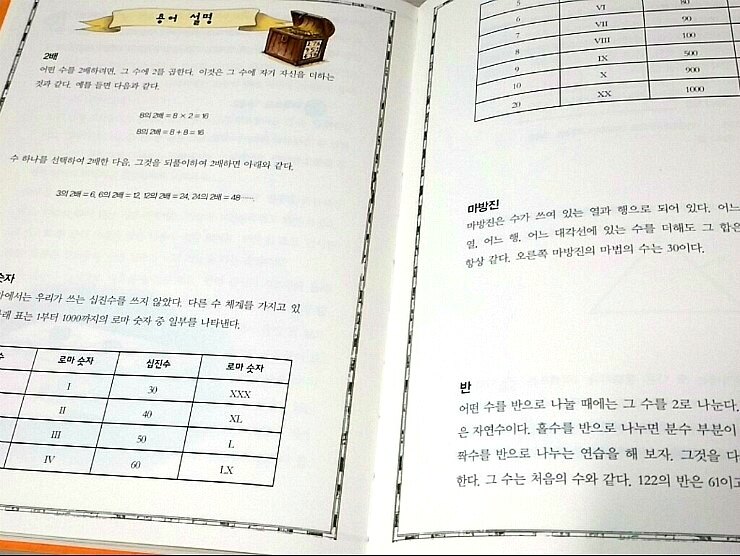 용어 설명
2배
어떤 수를 2배하려면, 그 수에 2를 곱한다. 이것은 그 수에 자기 자신을 더하는
것과 같다. 예를 들면 다음과 같다.
8의 2배 = 8 × 2 = 16
8의 2배 = 8 + 8 = 16
수 하나를 선택하여 2배한 다음, 그것을 되풀이하여 2배하면 아래와 같다.
3의 2배 = 6, 6의 2배 = 12, 12의 2배 = 24, 24의 2배 = 48……
숫자
에서는 우리가 쓰는 십진수를 쓰지 않았다. 다른 수 체계를 가지고 있
래 표는 1부터 1000까지의 로마 숫자 중 일부를 나타낸다.
수 로마 숫자 십진수 로마 숫자
I 30 XXX
II 40 XL
III 50 L
IV 60 LX
5 VI 80
6 VII 90
7 VIII 100
8 IX 500
9 X 900
10 XX 1000
20
마방진
마방진은 수가 쓰여 있는 열과 행으로 되어 있다. 어느
열, 어느 행, 어느 대각선에 있는 수를 더해도 그 합은
항상 같다. 오른쪽 마방진의 마법의 수는 30이다.
반
어떤 수를 반으로 나눌 때에는 그 수를 2로 나눈다.
은 자연수이다. 홀수를 반으로 나누면 분수 부분이
짝수를 반으로 나누는 연습을 해 보자. 그것을 다
한다. 그 수는 처음의 수와 같다. 122의 반은 61이고